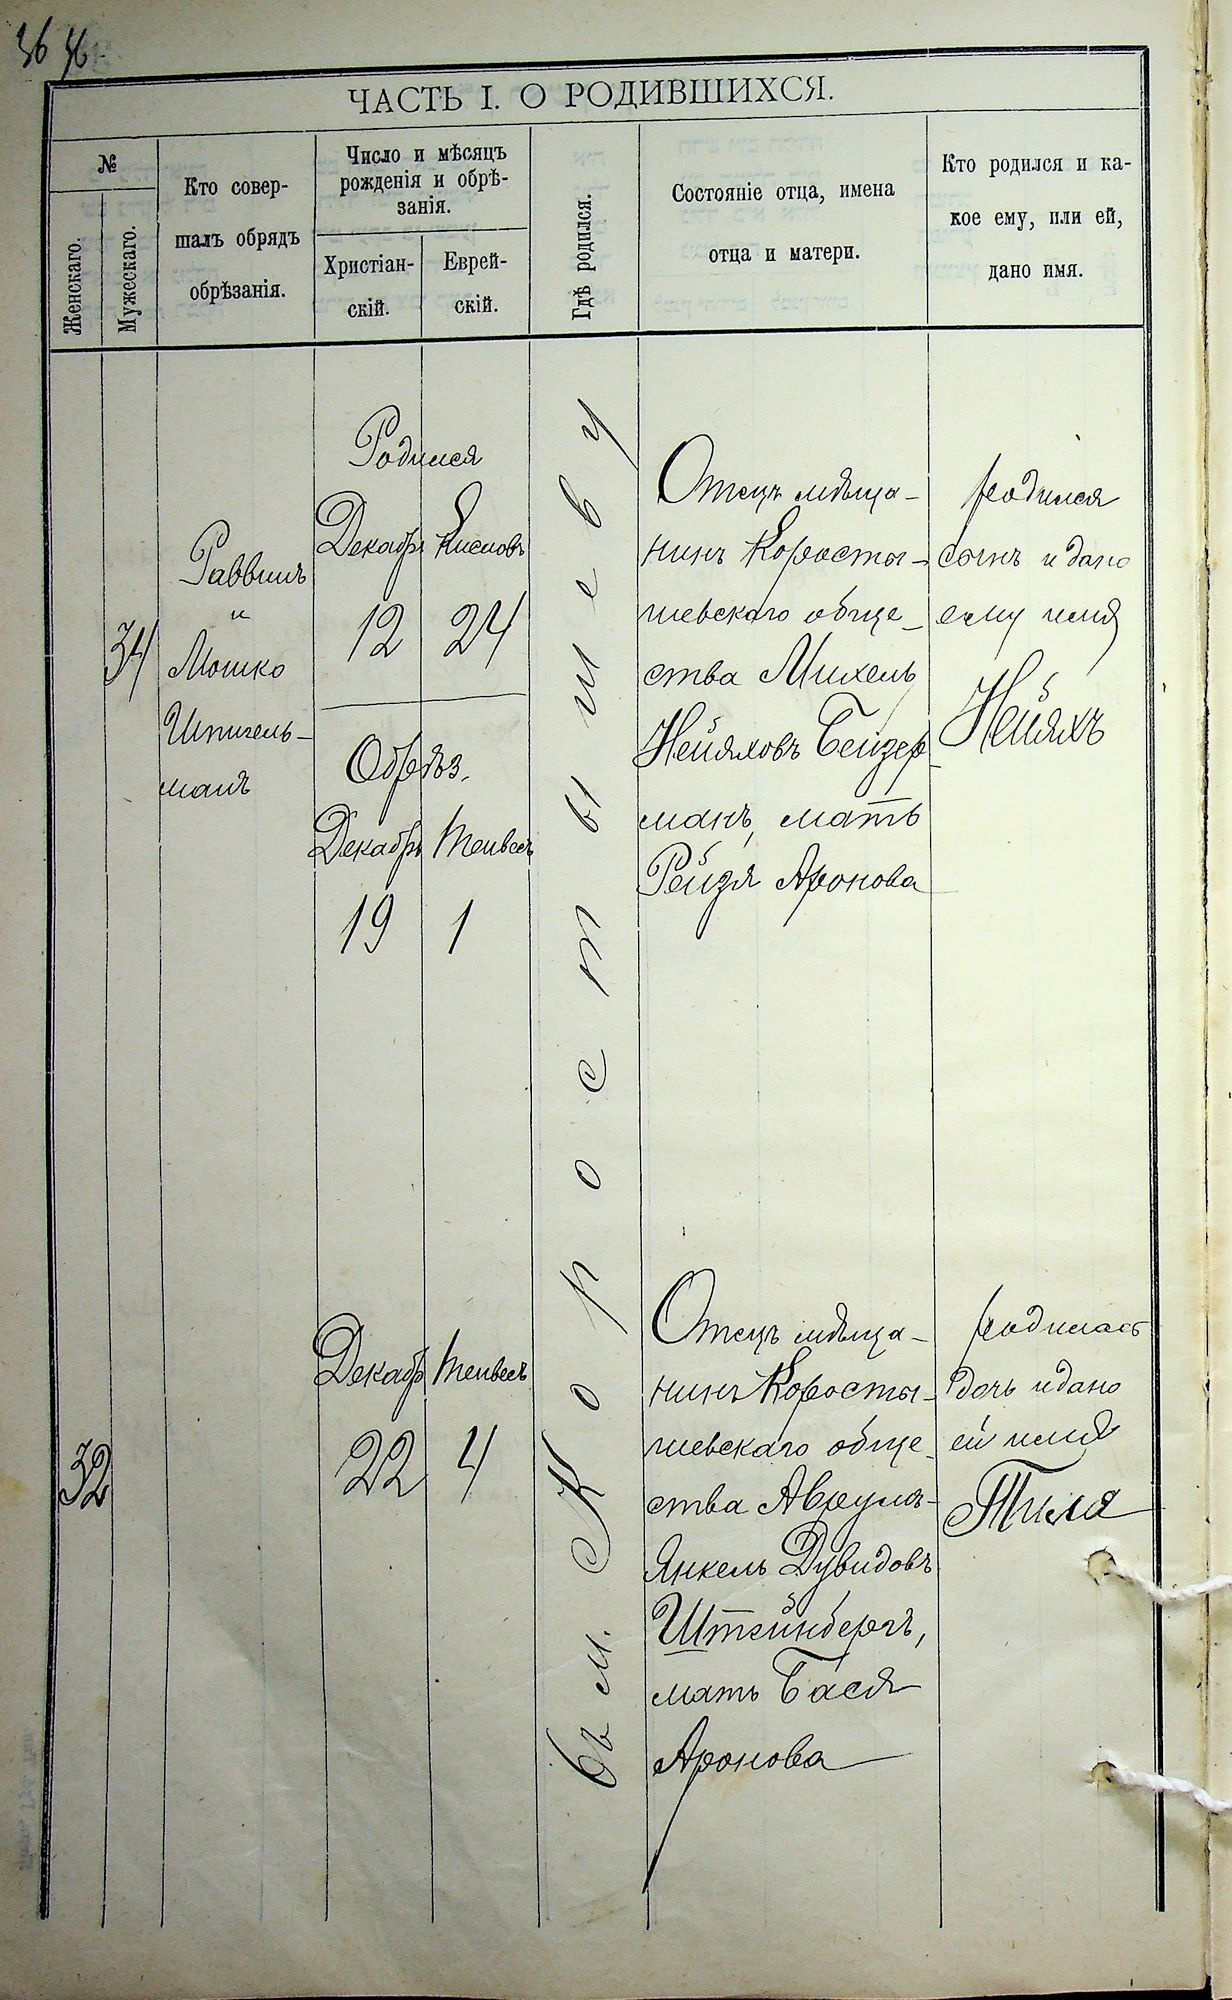 36 36
ЧАСТЬ I. О РОДИВШИХСЯ.
№
Женскаго.
Мужескаго.
Кто совер-
шалъ обрядъ
обрѣзанія.
Число и мѣсяцъ
рожденія и обрѣ-
занія.
Христіан-
скій.
Еврей-
скій.
Гдѣ родился.
Состояніе отца, имена
отца и матери.
Кто родился и ка-
кое ему, или ей,
дано имя.
34
Раввинъ
и
Мошко
Шпигель-
манъ
Родился
Декабр Кислевъ
12 24
Обрѣз.
Декабрь Тейвесъ
19 1
въ м. Коростышеву
Отецъ мѣща-
нинъ Коросты-
шевскаго обще-
ства Михель
Нейяховъ Бейзер-
манъ, мать
Рейзя Аронова
родился
сынъ и дано
ему имя
Нейяхъ
32
Декабр Тейвесъ
22 4
Отецъ мѣща-
нинъ Коросты-
шевскаго обще-
ства Аврумъ-
Янкель Дувидовъ
Штейнбергъ,
мать Бася
Аронова
родилась
дочь и дано
ей имя
Тиля